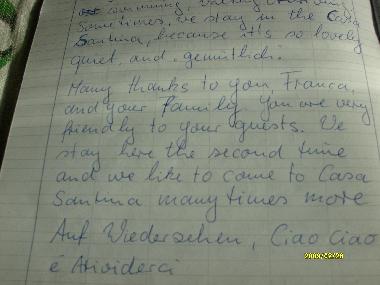 swimming,
Sometimes, we stay in the Casa
Santina, because it's so lovely
quiet, and „gemütlich."
Many thanks to you, Franca,
and your family. You are very
friendly to your guests. We
stay here the second time
and we like to come to Casa
Santina many times more
Auf Wiedersehen, Ciao Ciao
é Arivederci